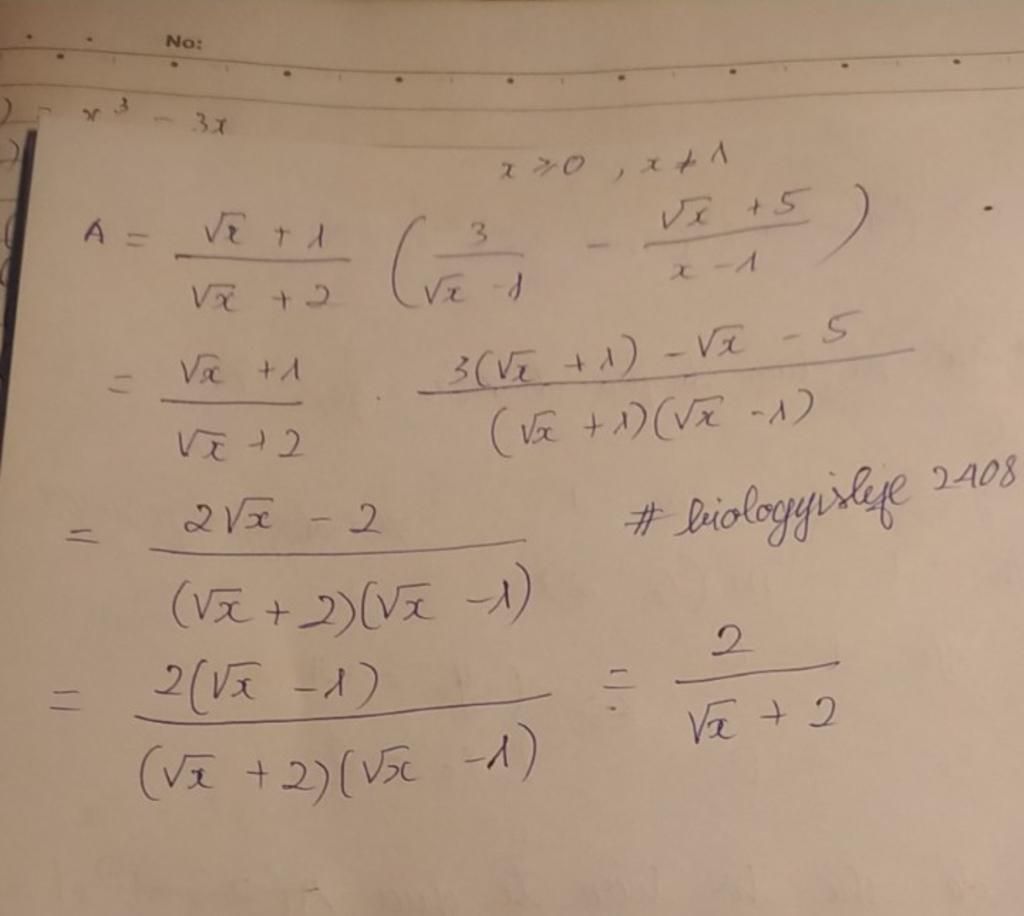 No:
x³ - 3x
x ≥ 0 , x ≠ 1
A = (√x + 1)/(√x + 2) (3/(√x - 1) - (√x + 5)/(x - 1))
= (√x + 1)/(√x + 2) . (3(√x + 1) - √x - 5)/((√x + 1)(√x - 1))
= (2√x - 2)/((√x + 2)(√x - 1))
# biologyislife 2408
= 2(√x - 1)/((√x + 2)(√x - 1)) = 2/(√x + 2)